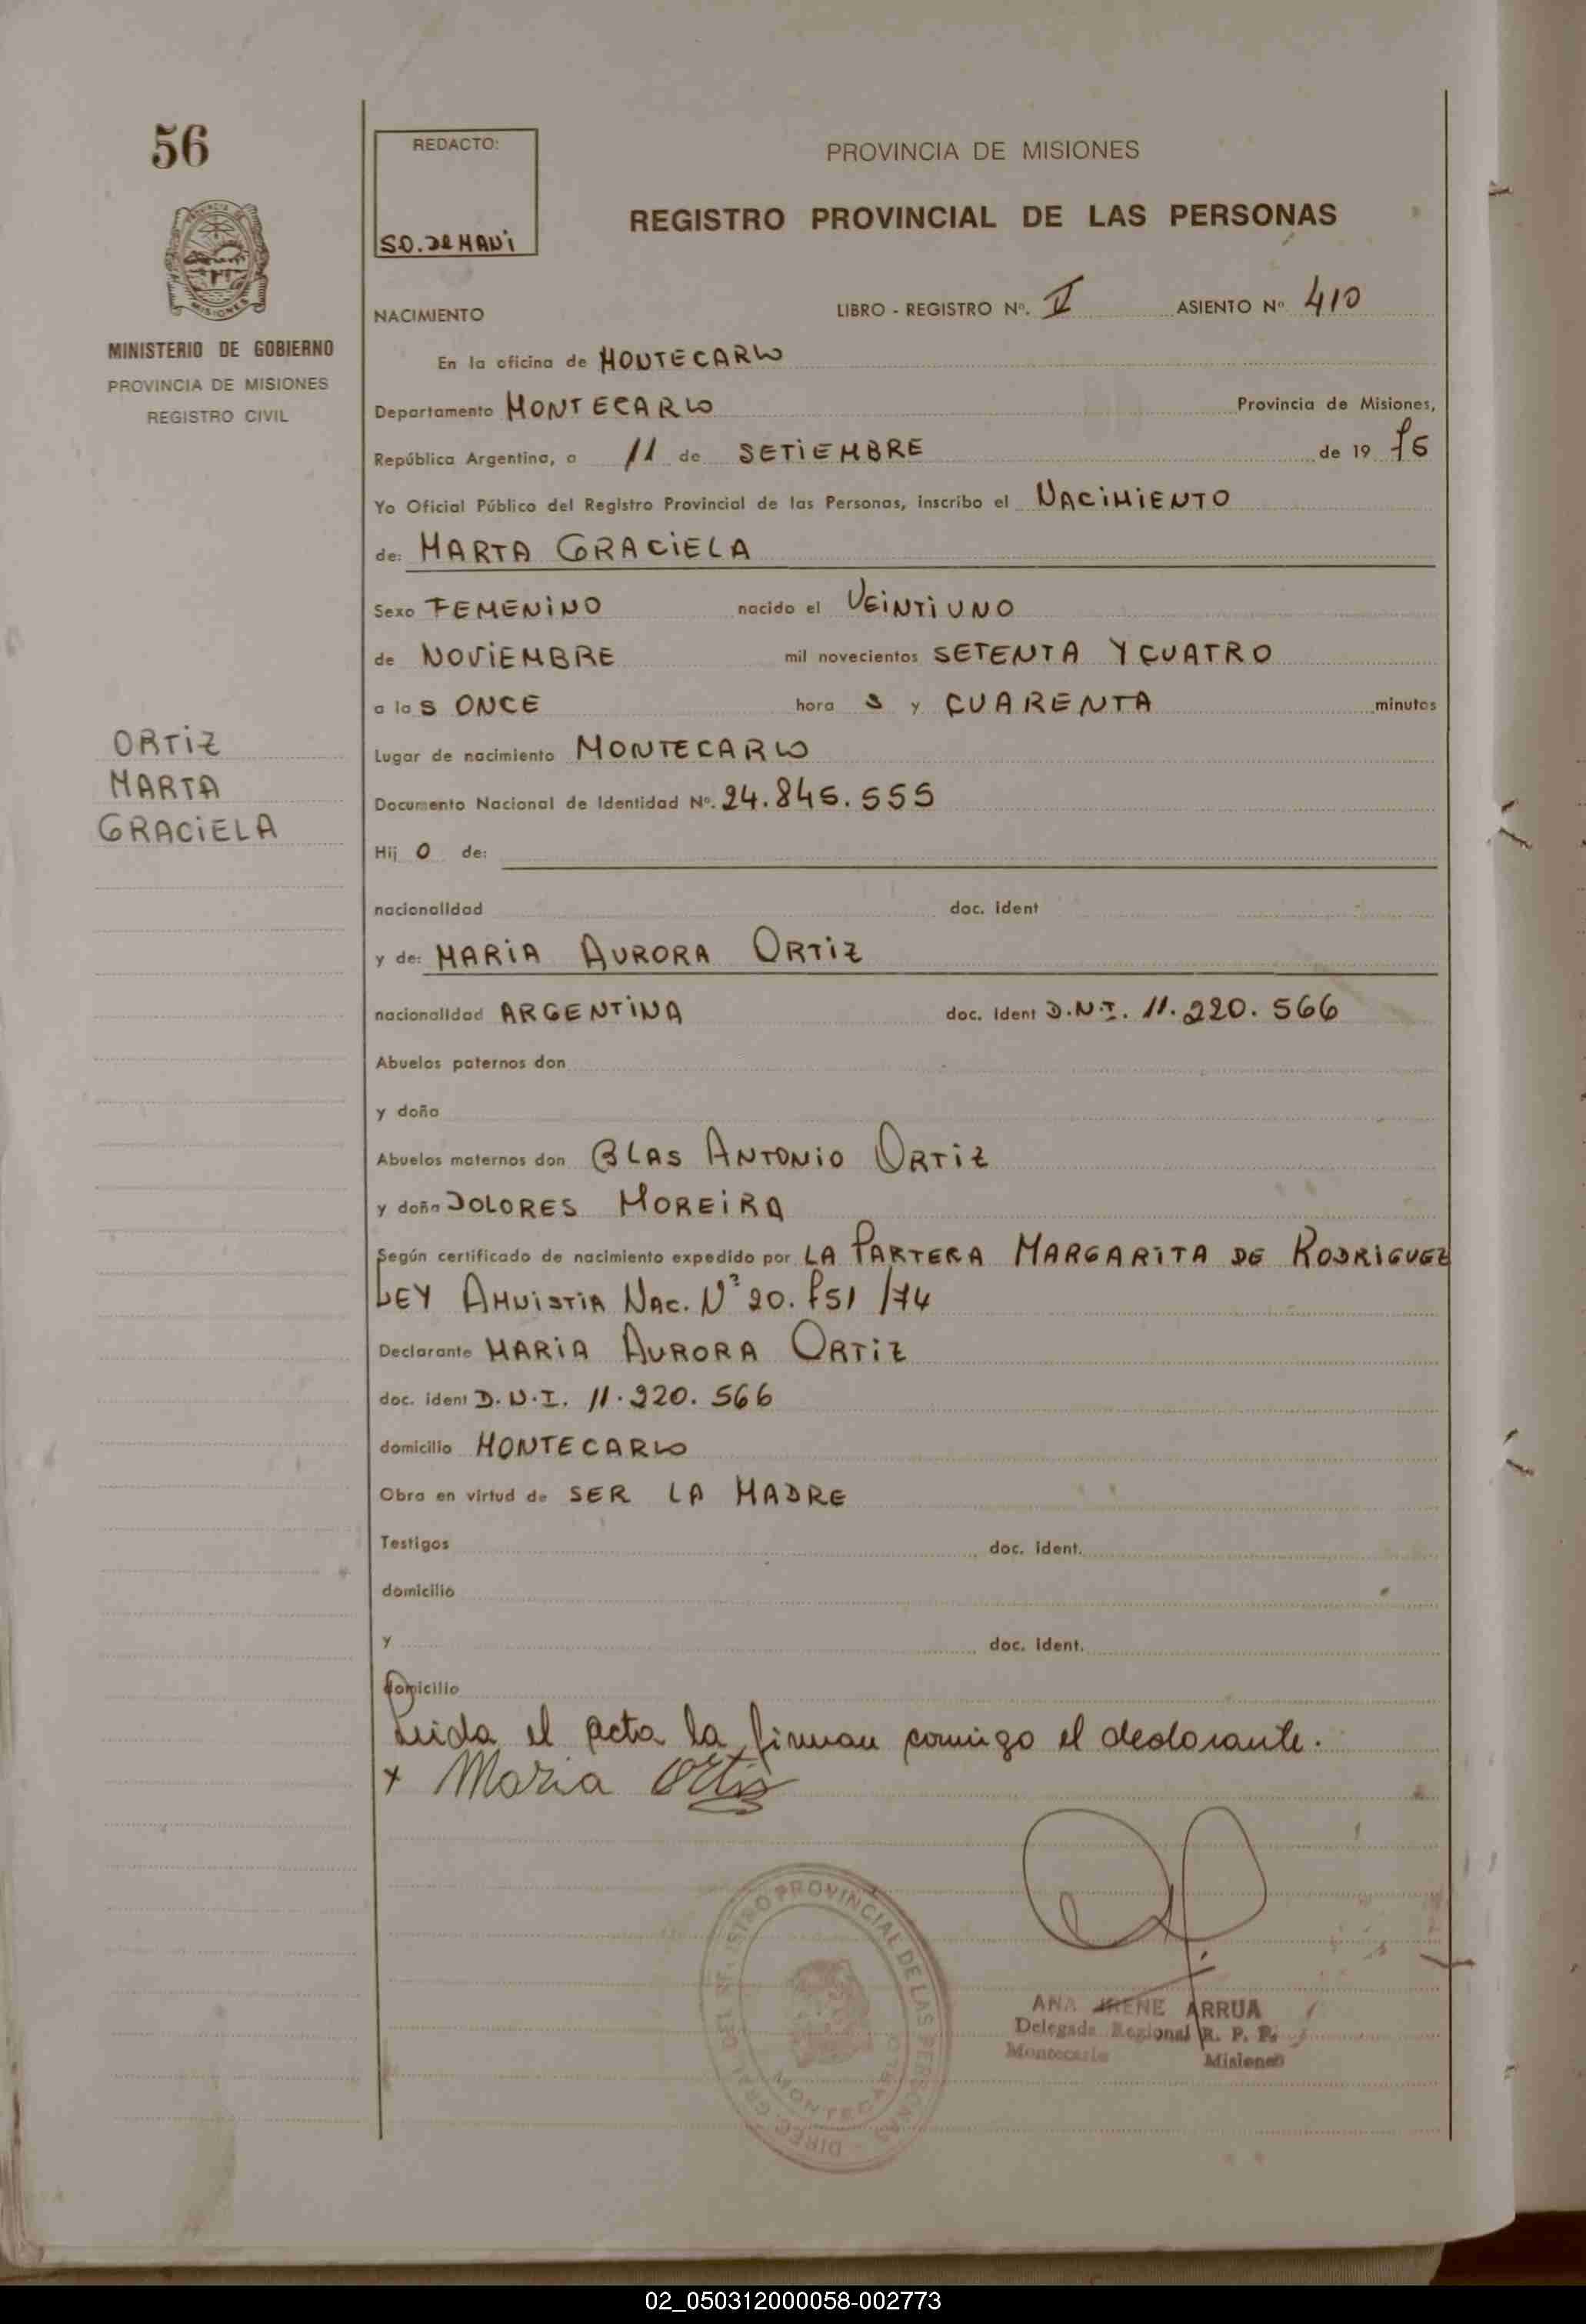 56
REDACTO:
PROVINCIA DE MISIONES
REGISTRO PROVINCIAL DE LAS PERSONAS
MINISTERIO DE GOBIERNO
PROVINCIA DE MISIONES
REGISTRO CIVIL
NACIMIENTO LIBRO - REGISTRO Nº. V ASIENTO Nº 410
En la oficina de MONTECARLO
Departamento MONTECARLO Provincia de Misiones,
República Argentina, a 11 de SETIEMBRE de 19 75
Yo Oficial Público del Registro Provincial de las Personas, inscribo el NACIMIENTO
de: MARTA GRACIELA
Sexo FEMENINO nacido el VEINTIUNO
de NOVIEMBRE mil novecientos SETENTA Y CUATRO
a las ONCE hora s y CUARENTA minutos
Lugar de nacimiento MONTECARLO
ORTIZ
MARTA
GRACIELA
Documento Nacional de Identidad Nº. 24.845.555
Hij O de:
nacionalidad doc. ident
y de: MARIA AURORA ORTIZ
nacionalidad ARGENTINA doc. ident D.N.I. 11.220.566
Abuelos paternos don
y doña
Abuelos maternos don BLAS ANTONIO ORTIZ
y doña DOLORES MOREIRA
Según certificado de nacimiento expedido por LA PARTERA MARGARITA DE RODRIGUEZ
LEY AMNISTIA NAC. Nº 20.751/74
Declarante MARIA AURORA ORTIZ
doc. ident D.N.I. 11.220.566
domicilio MONTECARLO
Obra en virtud de SER LA MADRE
Testigos doc. ident.
domicilio
y doc. ident.
domicilio
Leida el acta la firman comigo el declarante.
x Maria Ortiz
ANA IRENE ARRUA
Delegada Regional R. P. P.
Montecarlo Misiones
PROVINCIAL DE LAS PERSONAS
MONTECARLO
02_050312000058-002773